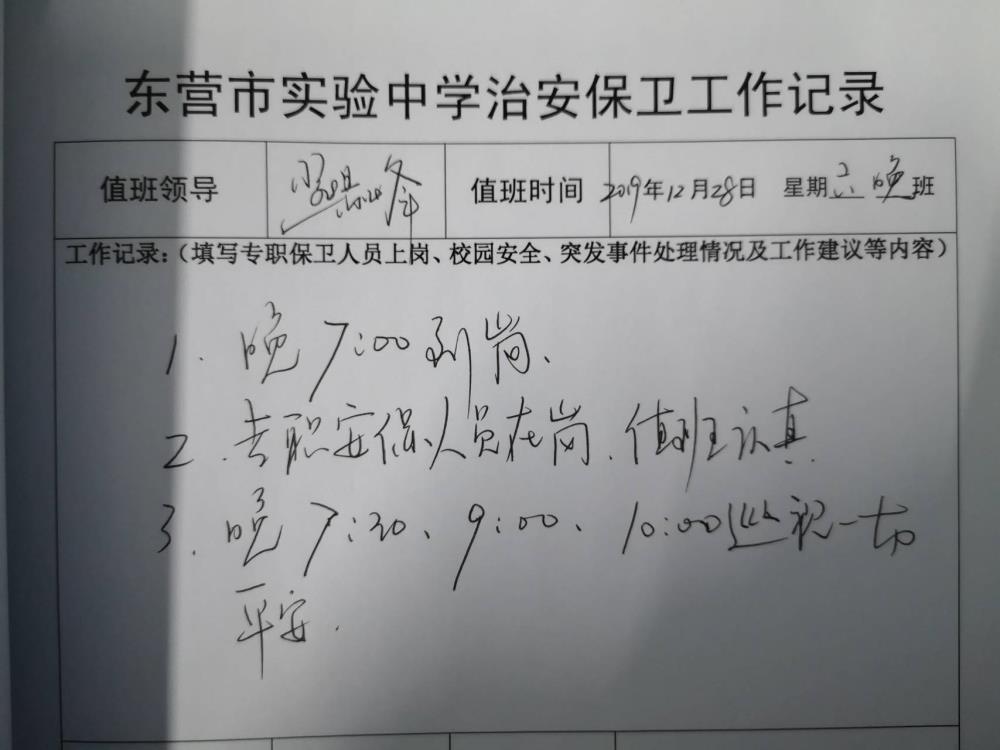 东营市实验中学治安保卫工作记录
值班领导 值班时间 2019年12月28日 星期六 晚班
工作记录：（填写专职保卫人员上岗、校园安全、突发事件处理情况及工作建议等内容）
1. 晚7:00到岗、
2. 专职安保人员在岗、值班认真
3. 晚7:30、9:00、10:00巡视一切
平安.